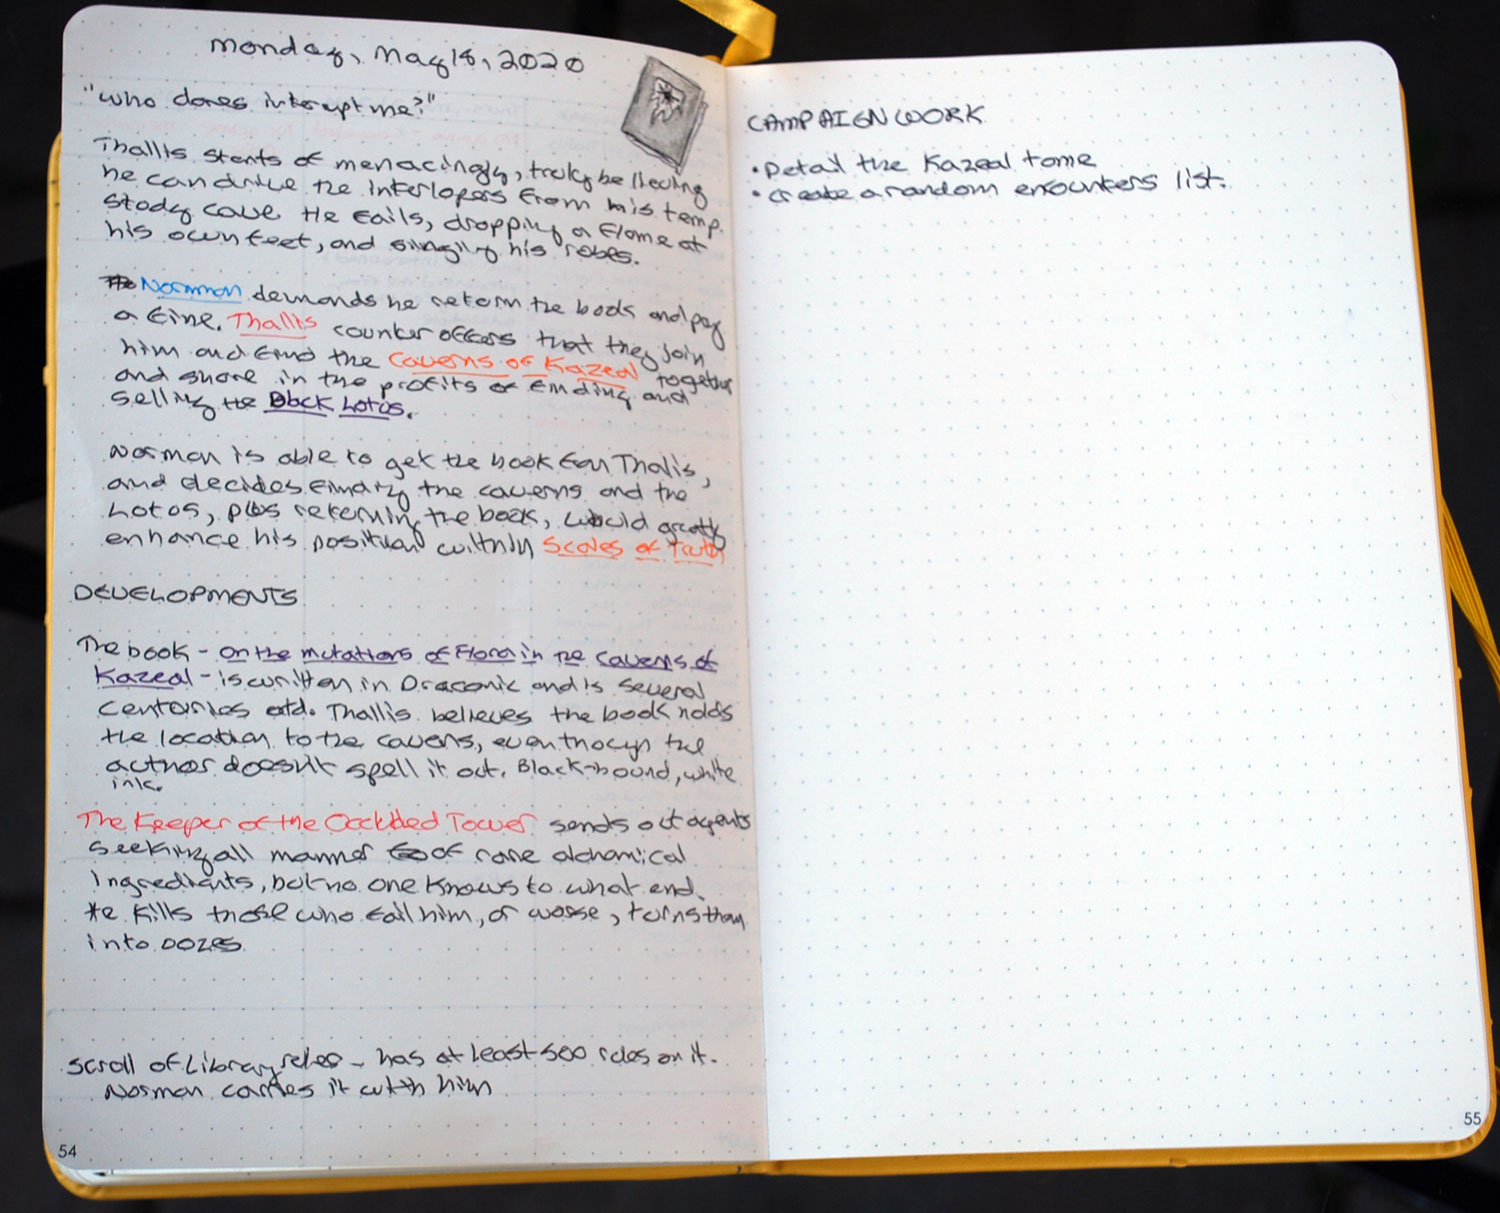 Monday, May 18, 2020
"Who dares interupt me?"
Thallis starts of menacingly, truly believing
he can drive the interlopers from his temp.
study cave. He fails, dropping a flame at
his own feet, and singing his robes.
Norman demands he return the book and pay
a fine. Thallis counter offers that they join
him and find the Caverns of Kazeal together
and share in the profits of finding and
selling the Black Lotus.
Norman is able to get the book from Thalis,
and decides finding the caverns and the
Lotos, plus returning the book, would greatly
enhance his position within Scales of Truth
DEVELOPMENTS
The book - On the mutations of Flora in the Caverns of
Kazeal - is written in Draconic and is several
centuries old. Thallis believes the book holds
the location to the caverns, even though the
author doesn't spell it out. Black-bound, white
ink.
The Keeper of the Occluded Tower sends out agents
seeking all manner of rare alchemical
ingredients, but no one knows to what end.
He kills those who fail him, or worse, turns them
into oozes
Scroll of Library rules - has at least 500 rules on it.
Norman carries it with him
54
CAMPAIGN WORK
• Detail the Kazeal tome
• Create a random encounters list.
55